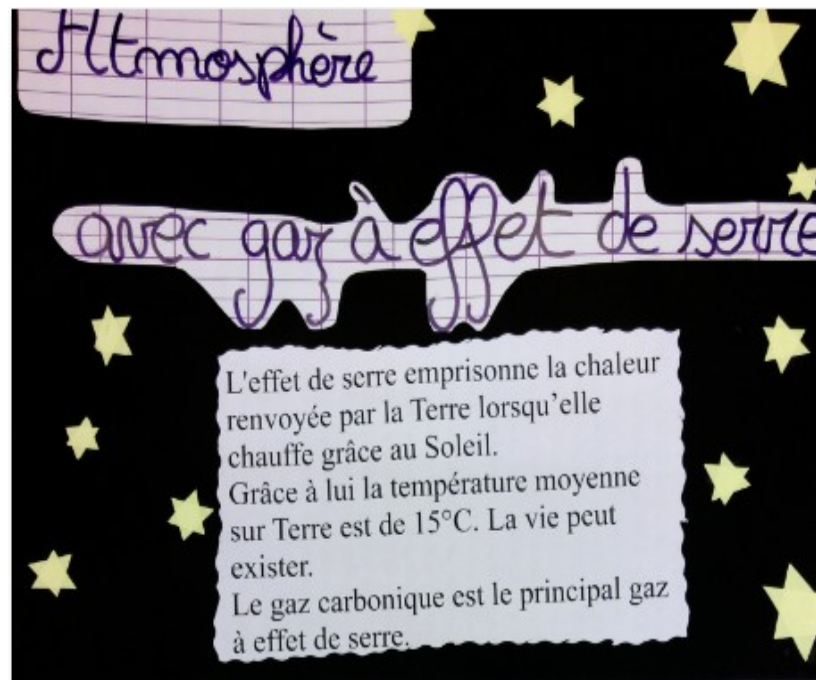 Atmosphère
avec gaz à effet de serre
L'effet de serre emprisonne la chaleur
renvoyée par la Terre lorsqu'elle
chauffe grâce au Soleil.
Grâce à lui la température moyenne
sur Terre est de 15°C. La vie peut
exister.
Le gaz carbonique est le principal gaz
à effet de serre.